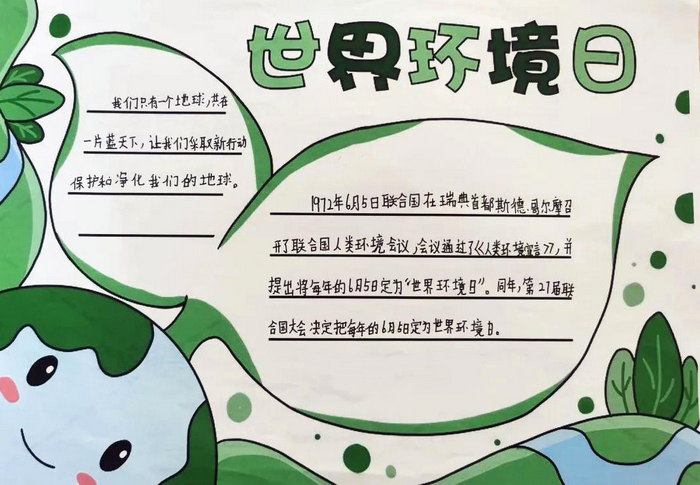 世界环境日
我们只有一个地球，共在
一片蓝天下，让我们采取新行动
保护和净化我们的地球。
1972年6月5日联合国在瑞典首都斯德哥尔摩召
开了联合国人类环境会议，会议通过了《人类环境宣言》，并
提出将每年的6月5日定为“世界环境日”。同年，第27届联
合国大会决定把每年的6月5定为世界环境日。